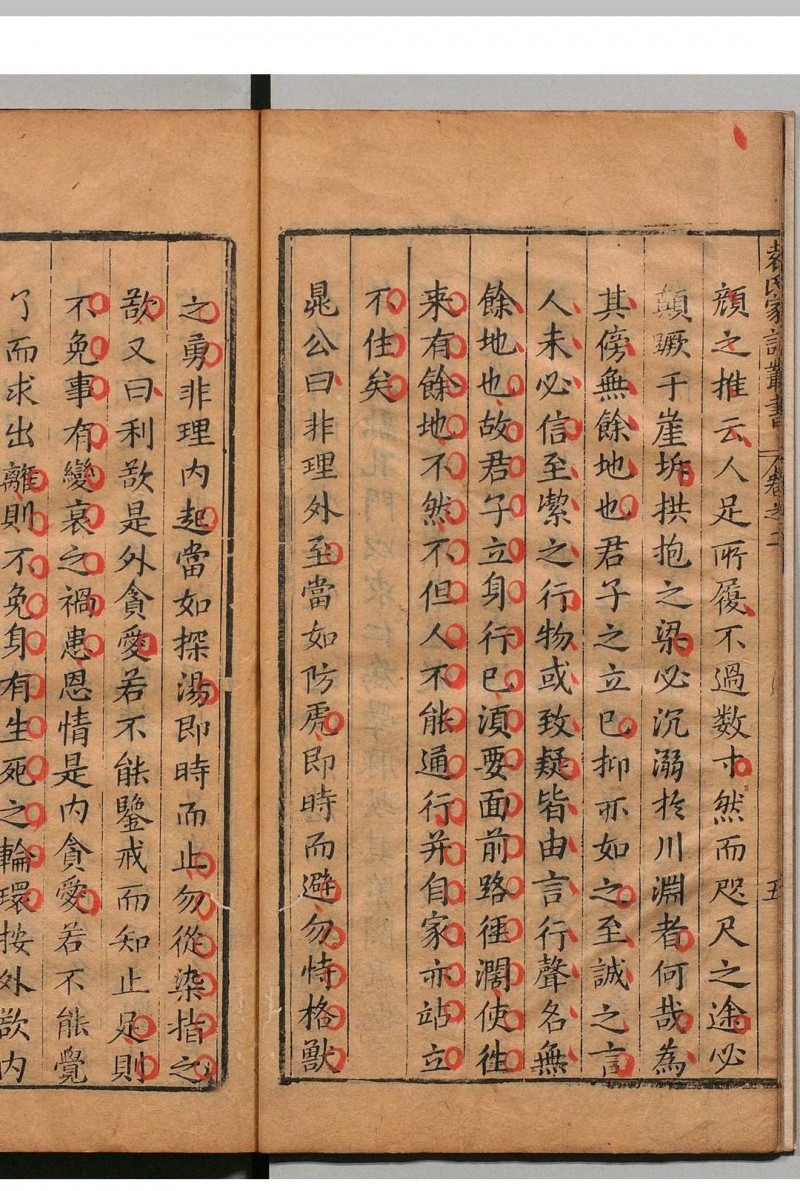 袁氏家訓叢書 卷之二 五
顏之推云人足所履不過數寸然而咫尺之途必
顛蹶于崖坼拱抱之梁必沉溺於川淵者何哉為
其傍無餘地也君子之立已抑亦如之至誠之言
人未必信至潔之行物或致疑皆由言行聲名無
餘地也故君子立身行已湏要面前路徑濶使徃
来有餘地不然不但人不能通行并自家亦站立
不住矣
晁公曰非理外至當如防虎即時而避勿恃格獸
之勇非理内起當如探湯即時而止勿從染指之
欲又曰利欲是外貪愛若不能鑒戒而知止足則
不免事有變衰之禍患恩情是内貪愛若不能覺
了而求出離則不免身有生死之輪環按外欲内